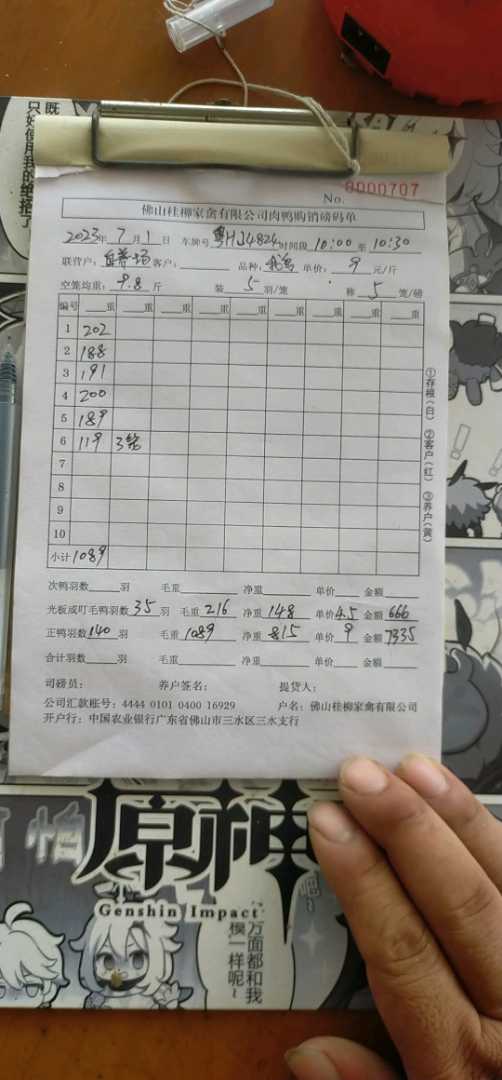 既
只好使用我的绝招了
No. 0000707
佛山桂柳家禽有限公司肉鸭购销磅码单
2023年7月1日 车牌号粤HJ4824时间段10:00至10:30
联营户:自养场客户: 品种: 单价:9元/斤
空笼均重:9.8斤 装5羽/笼 称5笼/磅
编号 重 重 重 重 重 重 重 重 重
1 202
2 188
3 191
4 200
5 189
6 119 3笼
7
8
9
10
小计 1089
①存根(白) ②客户(红) ③养户(黄)
次鸭羽数 羽 毛重 净重 单价 金额
光板或叮毛鸭羽数35羽 毛重216 净重148 单价4.5 金额666
正鸭羽数140羽 毛重1089 净重815 单价9 金额7335
合计羽数 羽 毛重 净重 单价 金额
司磅员: 养户签名: 提货人:
公司汇款账号: 4444 0101 0400 16929 户名: 佛山桂柳家禽有限公司
开户行: 中国农业银行广东省佛山市三水区三水支行
原神
Genshin Impact
万面都和我
模一样呢~